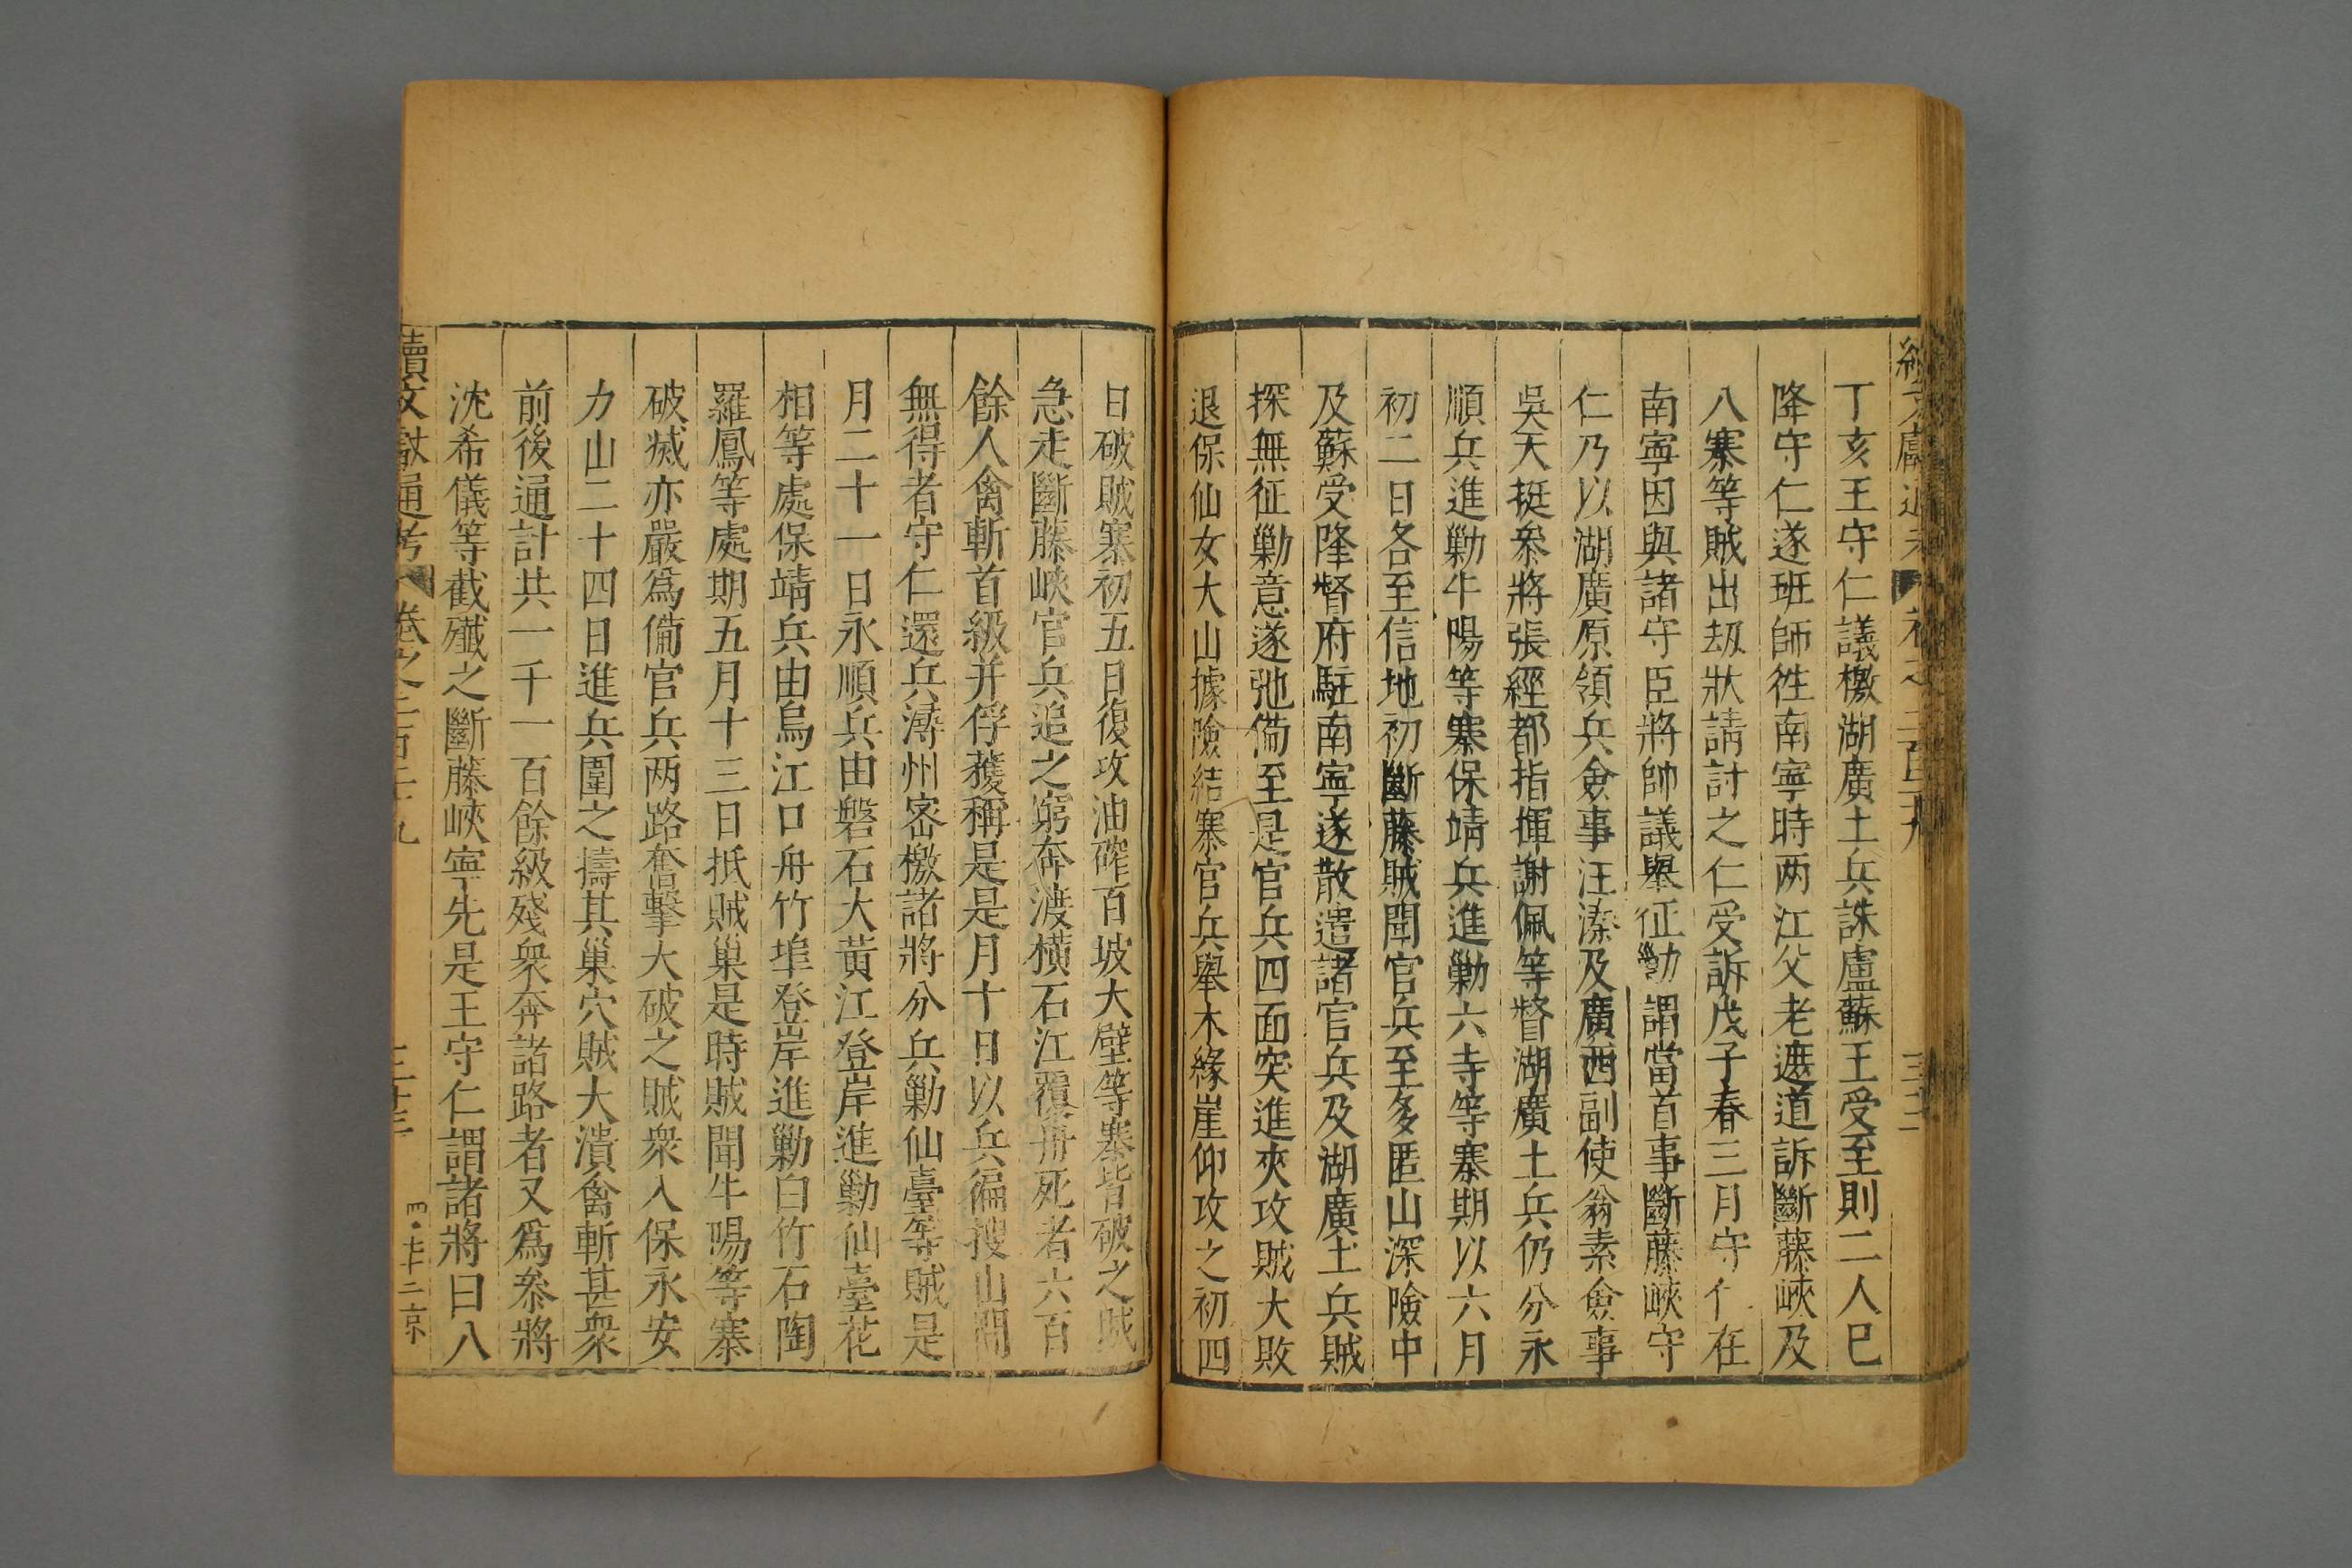 丁亥王守仁議檄湖廣土兵誅盧蘇王受至則二人巳
降守仁遂班師徃南寧時两江父老遮道訴斷藤峽及
八寨等賊出刼狀請討之仁受訴戊子春三月守仁在
南寧因與諸守臣將帥議舉征勦謂當首事斷藤峽守
仁乃以湖廣原領兵僉事汪溱及廣西副使翁素僉事
吳天挺叅將張經都指揮謝佩等督湖廣土兵仍分永
順兵進勦牛腸等寨保靖兵進勦六寺等寨期以六月
初二日各至信地初斷藤賊聞官兵至多匿山深險中
及蘇受降督府駐南寧遂散遣諸官兵及湖廣土兵賊
探無征勦意遂弛備至是官兵四面突進夾攻賊大敗
退保仙女大山據險結寨官兵舉木緣崖仰攻之初四
日破賊寨初五日復攻油碓百坡大壁等寨皆破之賊
急走斷藤峽官兵追之窮奔渡橫石江覆舟死者六百
餘人禽斬首級并俘獲稱是是月十日以兵徧搜山間
無得者守仁還兵潯州密檄諸將分兵勦仙臺等賊是
月二十一日永順兵由磐石大黃江登岸進勦仙臺花
相等處保靖兵由烏江口舟竹埠登岸進勦白竹石陶
羅鳳等處期五月十三日抵賊巢是時賊聞牛腸等寨
破滅亦嚴爲備官兵两路奮擊大破之賊衆入保永安
力山二十四日進兵圍之擣其巢穴賊大潰禽斬甚衆
前後通計共一千一百餘級殘衆奔諸路者又爲叅將
沈希儀等截殲之斷藤峽寧先是王守仁謂諸將曰八
續文獻通考 卷之二百三十九